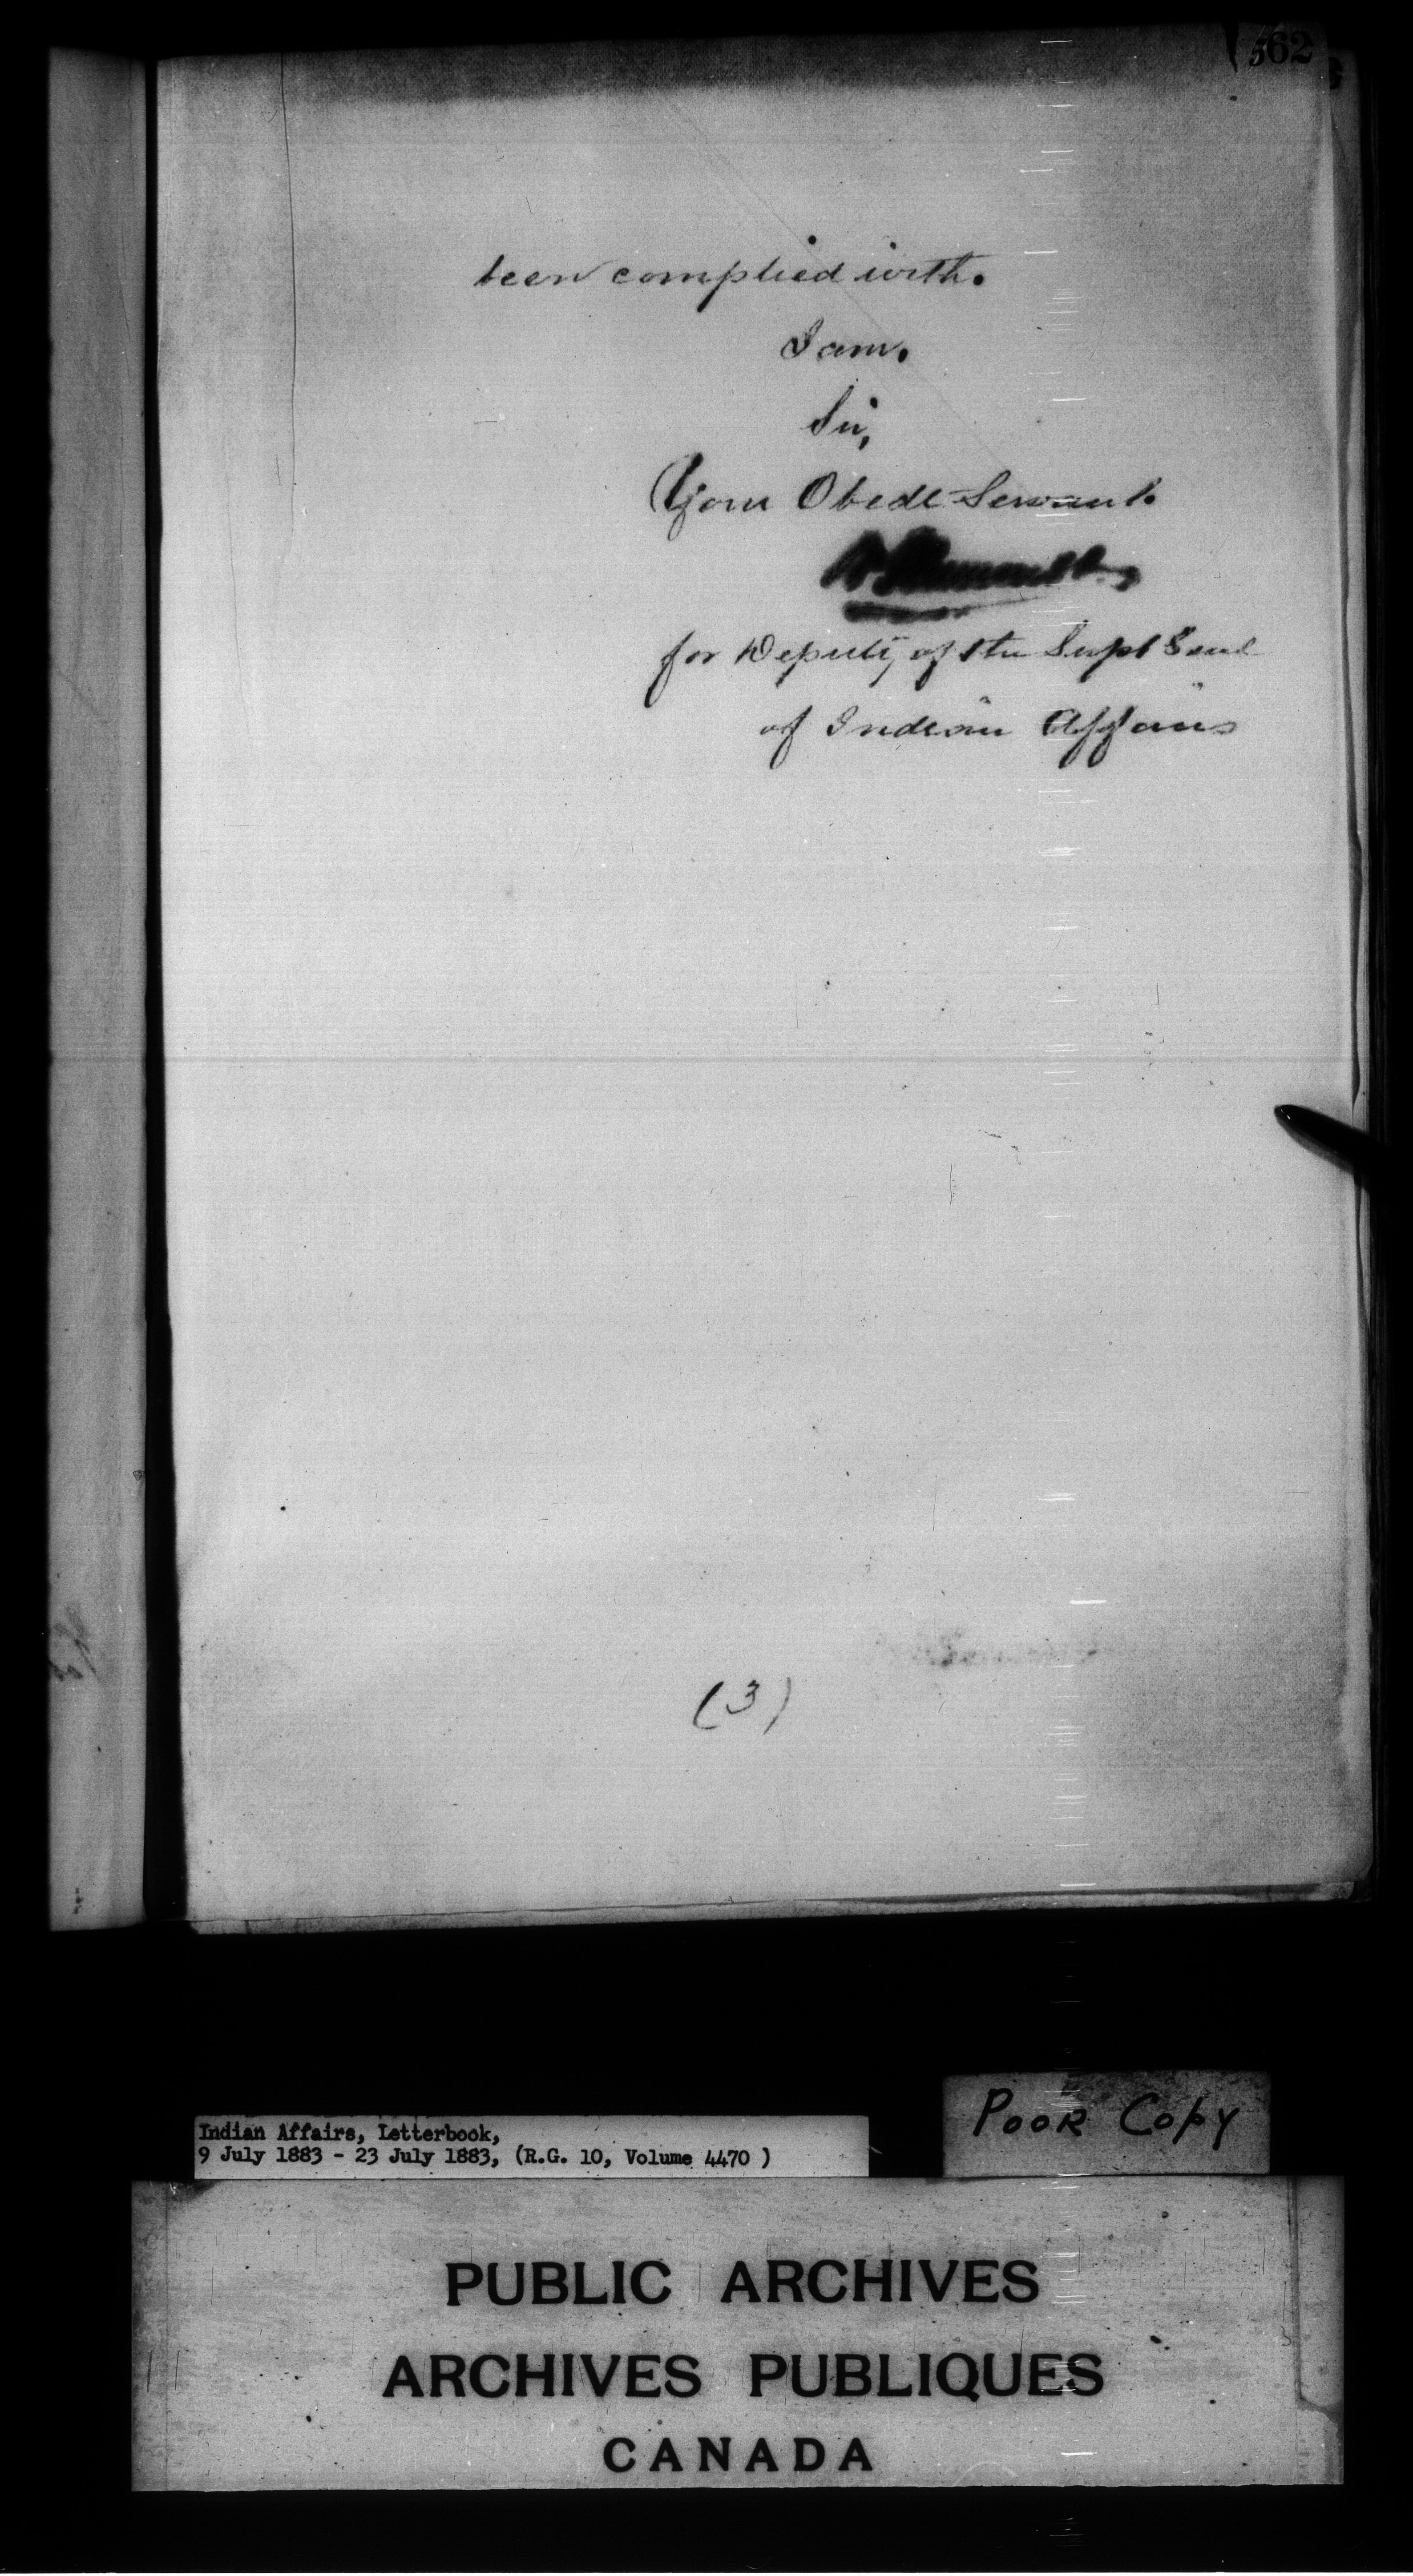 562
been complied with.
I am.
Sir,
Your Obedt Servant.
for Deputy of the Supt Genl
of Indian Affairs
(3)
Poor Copy
Indian Affairs, Letterbook,
9 July 1883 - 23 July 1883, (R.G. 10, Volume 4470 )
PUBLIC ARCHIVES
ARCHIVES PUBLIQUES
CANADA